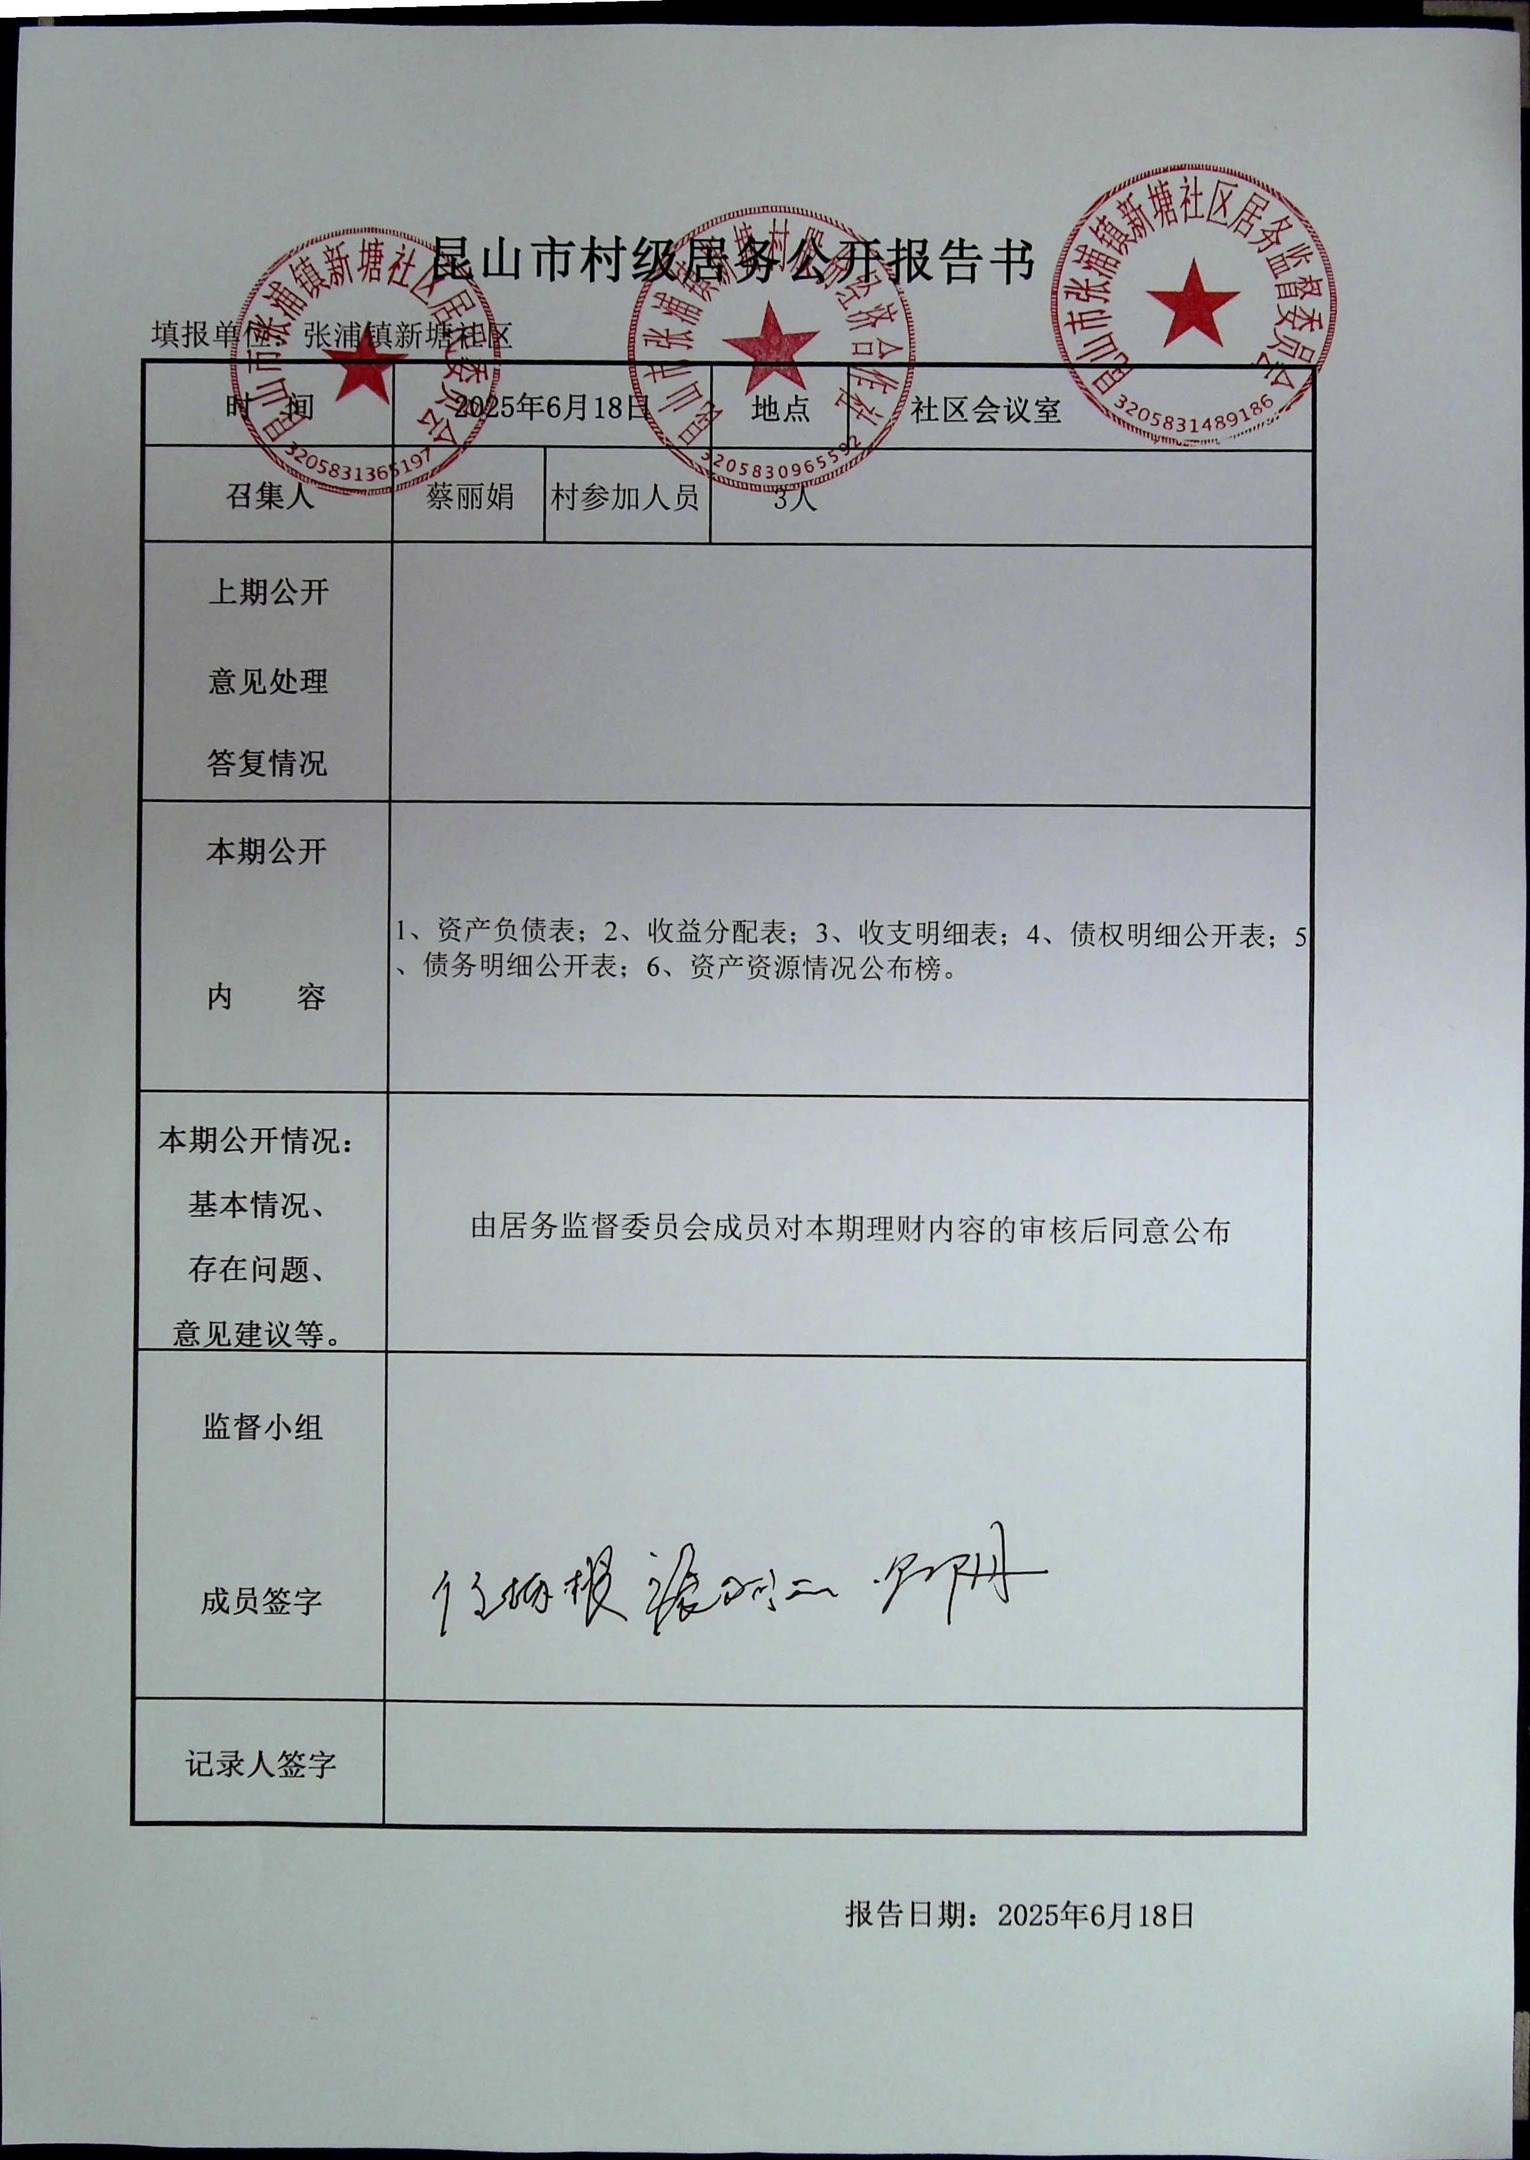 昆山市村级居务公开报告书
填报单位：张浦镇新塘社区
昆山市张浦镇新塘社区居民委员会
3205831365197
昆山市张浦镇新塘村股份经济合作社
3205830965592
昆山市张浦镇新塘社区居务监督委员会
3205831489186
时 间 2025年6月18日 地点 社区会议室
召集人 蔡丽娟 村参加人员 3人
上期公开
意见处理
答复情况
本期公开
内 容
1、资产负债表；2、收益分配表；3、收支明细表；4、债权明细公开表；5
、债务明细公开表；6、资产资源情况公布榜。
本期公开情况：
基本情况、
存在问题、
意见建议等。
由居务监督委员会成员对本期理财内容的审核后同意公布
监督小组
成员签字
记录人签字
报告日期：2025年6月18日